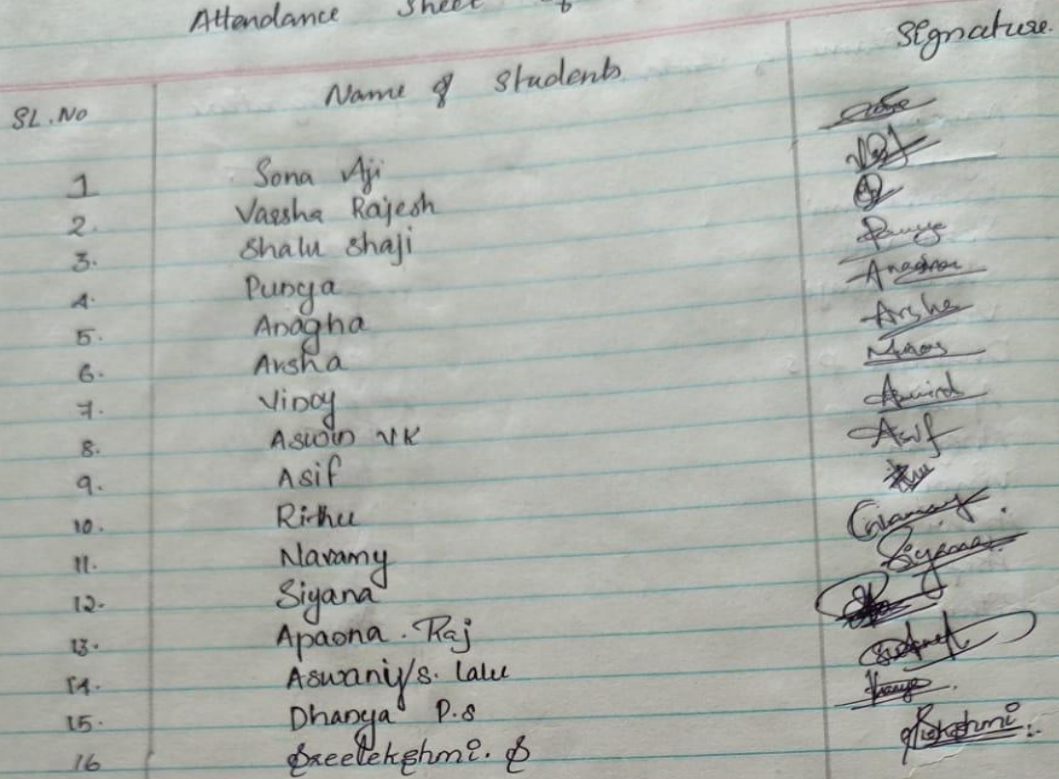 Attendance Sheet of
SL.No Name of Students Signature.
1 Sona Aji
2. Varsha Rajesh
3. Shalu Shaji
4. Punya Punya
5. Anagha Anagha
6. Arsha Arsha
7. Vinay
8. Aswin VK
9. Asif Asif
10. Rithu
11. Navamy
12. Siyana Siyana
13. Aparna. Raj
14. Aswani S. Lalu
15. Dhanya P.S
16 Sreelekshmi. S